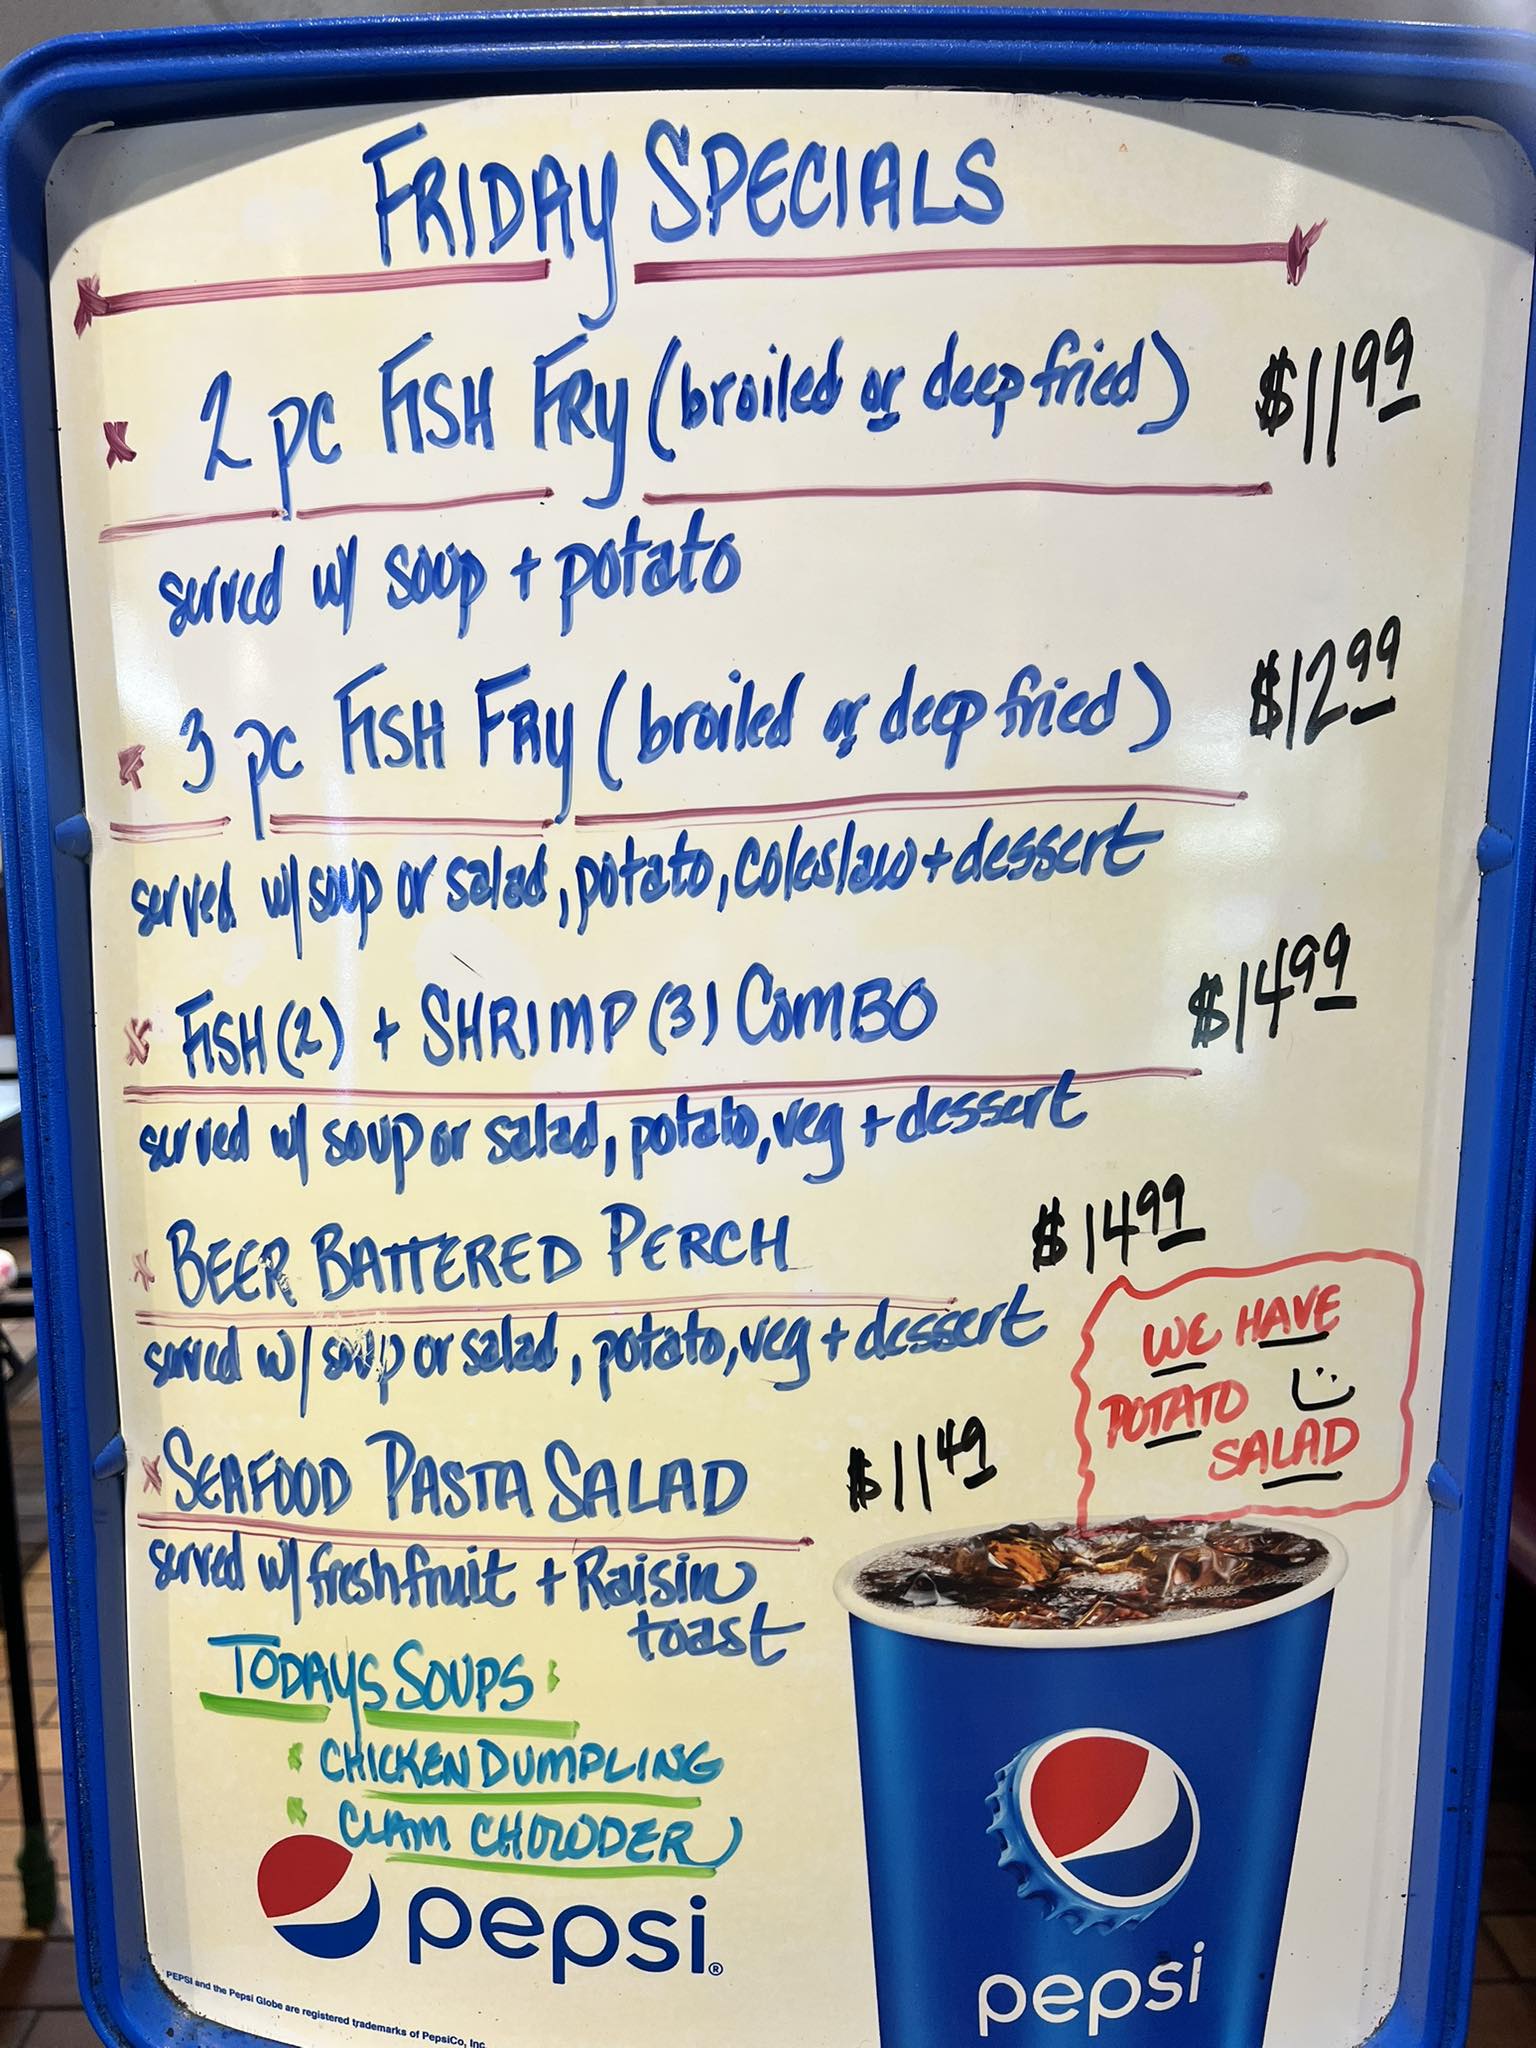 FRIDAY SPECIALS
2 pc FISH FRY (broiled or deep fried) $11.99
served w/ soup + potato
3 pc FISH FRY (broiled or deep fried) $12.99
served w/ soup or salad, potato, coleslaw + dessert
FISH (2) + SHRIMP (3) COMBO $14.99
served w/ soup or salad, potato, veg + dessert
BEER BATTERED PERCH $14.99
served w/ soup or salad, potato, veg + dessert
WE HAVE
POTATO
SALAD
SEAFOOD PASTA SALAD $11.49
served w/ fresh fruit + Raisin
toast
TODAYS SOUPS:
CHICKEN DUMPLING
CLAM CHOWDER
pepsi®
pepsi
PEPSI and the Pepsi Globe are registered trademarks of PepsiCo, Inc.